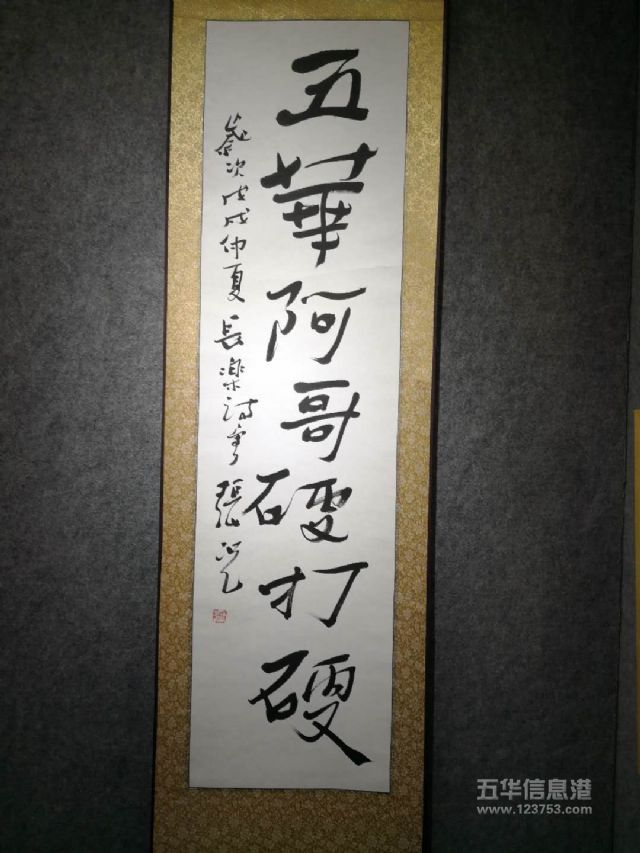 五華阿哥硬打硬
歲次戊戌仲夏長樂詩會張
五华信息港
www.123753.com